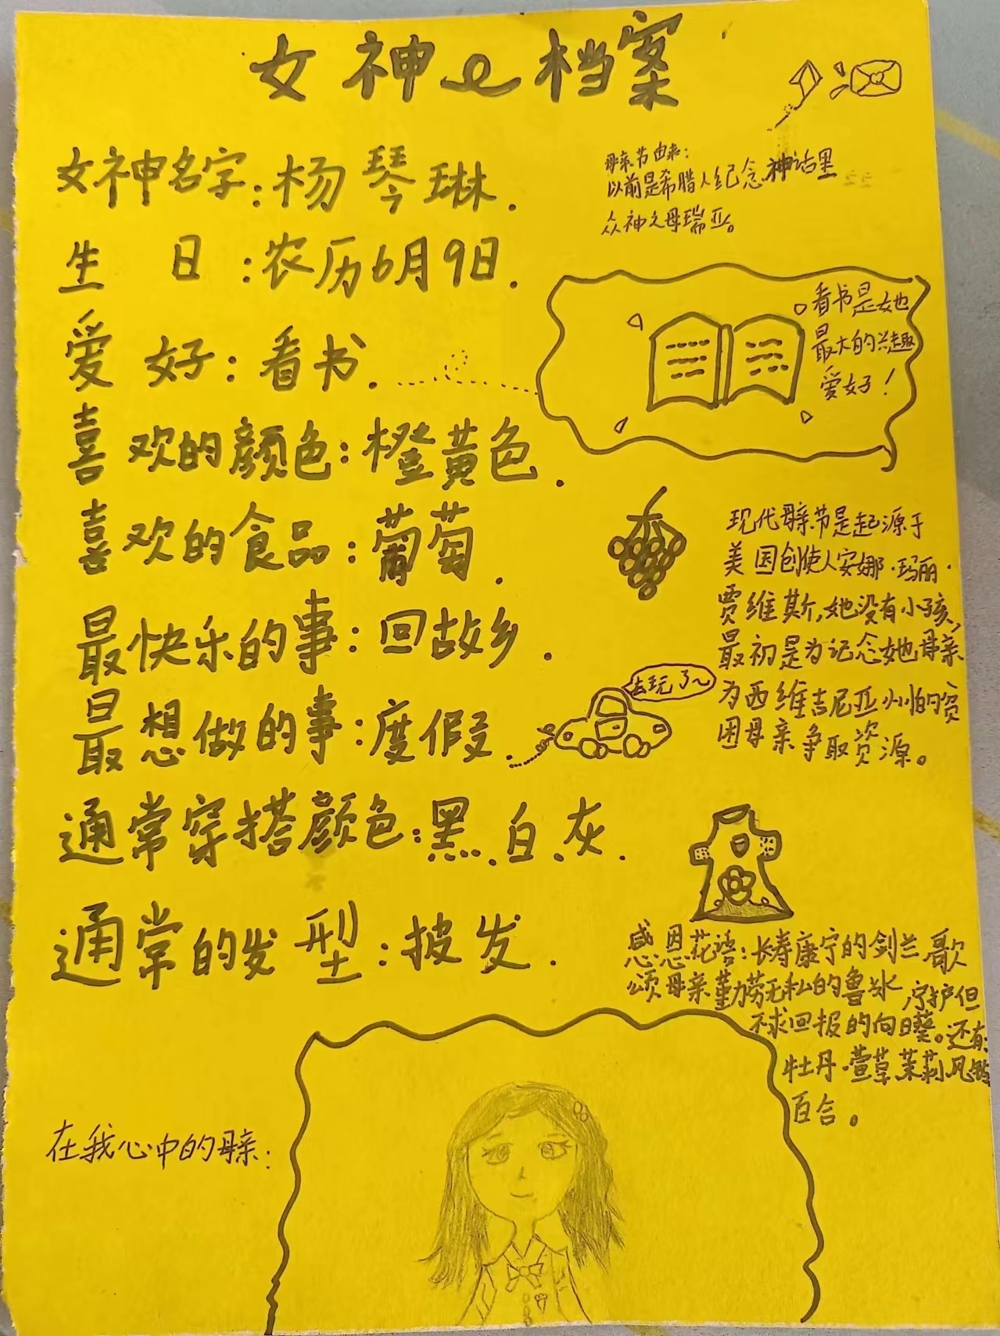 女神e档案
女神名字:杨琴琳.
生日:农历6月9日.
爱好:看书.
喜欢的颜色:橙黄色.
喜欢的食品:葡萄.
最快乐的事:回故乡.
最想做的事:度假.
通常穿搭颜色:黑、白、灰.
通常的发型:披发.
在我心中的母亲:
母亲节由来:
以前是希腊人纪念神话里
众神之母瑞亚。
看书是她
最大的兴趣
爱好!
现代母亲节是起源于
美国创使人安娜·玛丽·
贾维斯,她没有小孩,
最初是为记念她母亲
为西维吉尼亚州怕的贫
困母亲争取资源。
去玩了~
感恩花语:长寿康宁的剑兰、歌
颂母亲勤劳无私的鲁冰 守护但
不求回报的向日葵。还有:
牡丹·萱草 茉莉 风铃
百合。